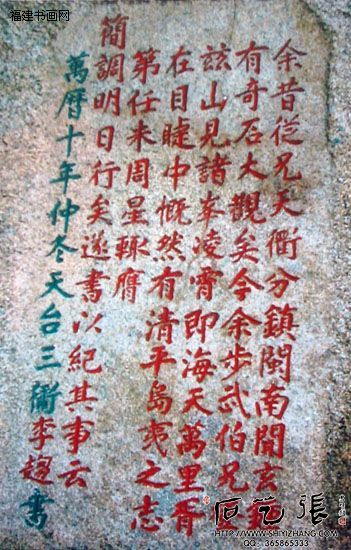 福建书画网
余昔從兄天衢分鎮閩南聞玄鍾
有奇石大觀矣今余步武伯兄登
茲山見諸峯凌霄即海天萬里胥
在目睫中慨然有清平島夷之志
第任未周星輒膺
簡調明日行矣遂書以紀其事云
萬曆十年仲冬天台三衢李書
石艺張
HTTP://WWW.SHIYIZHANG.COM
QQ:365865333